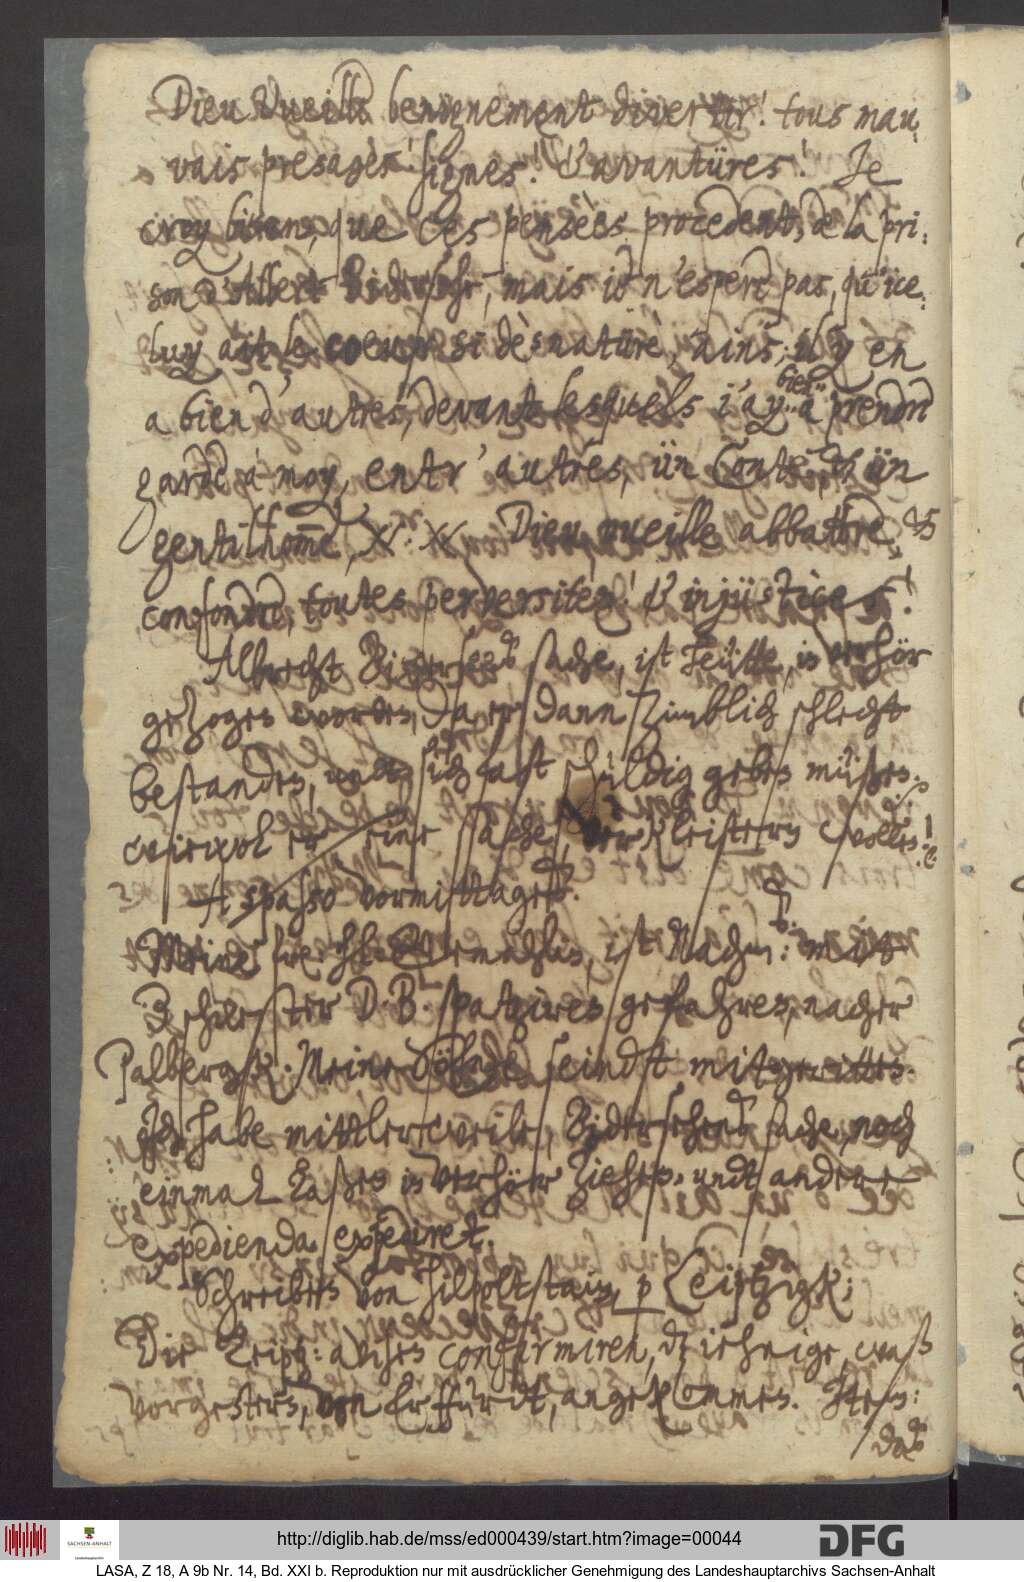 Dieu vueille benignement divertir! tous mau-
vais presages! signes! & avantüres! Je
croy bien, que ces pensèes procedent, de la pri-
son d'Albert Bidersehe, mais je n'espere pas, qu'ice-
luy ait le coeur si dèsnaturè, ains, il y en
a bien d'autres, devant lesquels i'ay bien a prendre
garde a moy, entr' autres, ün Conte, & ün
gentilhomme, Dieu vueille abbattre, &
confondre, toutes perversitèz! & injüstices!
Albrecht Bidersehes sache, ist heütte, in verhör
gezogen worden, da er dann zimblich schlecht
bestanden, undt sich fast schuldig geben müßen.
wiewol er seine sache, verkleistern wollen.
A spasso vormittages.
Meine freundliche herzlieb(st)e Gemahlin, ist Nachm: mitt
Schwester D. B. spatziren gefahren, nacher
Palbergk. Meine Söhne seindt mitgeritten.
Ich habe mittlerweile, Bidersehens sache, noch
einmal laßen in verhör ziehen, undt andere
expedienda expediret.
Schreiben von Hilpoltstain, p Leiptzigk;
Die Leiptz: avisen confirmiren, dasiehnige, waß
vorgestern, von Erffurdt, angekommen. Item:
daß
http://diglib.hab.de/mss/ed000439/start.htm?image=00044
DFG
SACHSEN-ANHALT
Landeshauptarchiv
LASA, Z 18, A 9b Nr. 14, Bd. XXI b. Reproduktion nur mit ausdrücklicher Genehmigung des Landeshauptarchivs Sachsen-Anhalt